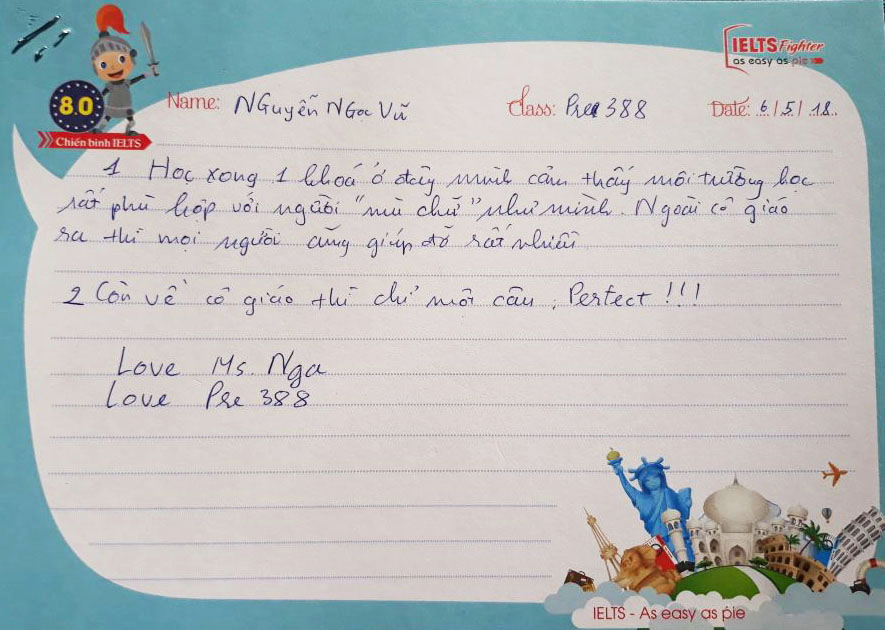 IELTS Fighter
as easy as pie
8.0
Chiến binh IELTS
Name: NGuyễn NGọc Vũ Class: Pre 388 Date: 6 / 5 / 18
1 Học xong 1 khoá ở đây mình cảm thấy môi trường học
rất phù hợp với người "mù chữ" như mình. Ngoài cô giáo
ra thì mọi người cũng giúp đỡ rất nhiều
2 Còn về cô giáo thì chỉ một câu, Perfect !!!
Love Ms. Nga
Love Pre 388
IELTS - As easy as pie